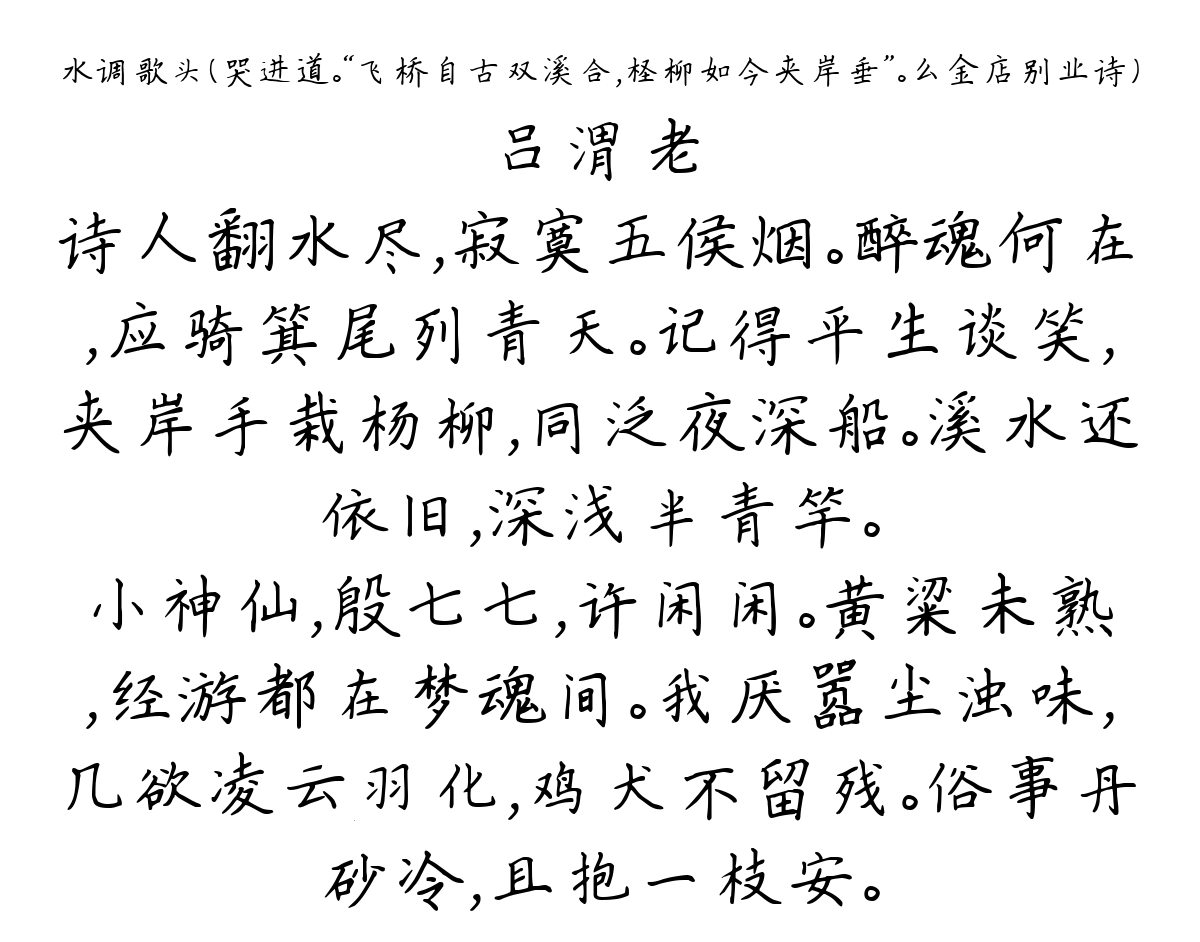 水调歌头(哭进道。“飞桥自古双溪合,柽柳如今夹岸垂”。么金店别业诗)
吕渭老
诗人翻水尽,寂寞五侯烟。醉魂何在
,应骑箕尾列青天。记得平生谈笑,
夹岸手栽杨柳,同泛夜深船。溪水还
依旧,深浅半青竿。
小神仙,殷七七,许闲闲。黄粱未熟
,经游都在梦魂间。我厌嚣尘浊味,
几欲凌云羽化,鸡犬不留残。俗事丹
砂冷,且抱一枝安。